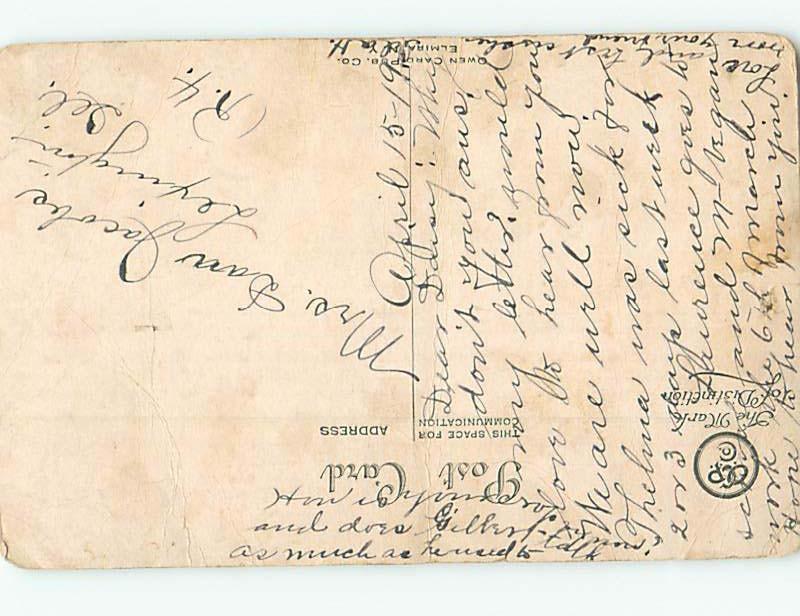 Post Card
THIS SPACE FOR
COMMUNICATION
ADDRESS
The Mark
of Distinction
OWEN CARD PUB. CO.
ELMIRA, N.Y.
April 15-19
Dear Daisy: Why
don't you ans,
my letter, would
love to hear from you
We are well now
Thelma was sick for
2 or 3 days last week
Laurence goes to
school and
work the 6th March
Hope to hear from you
Love and best wishes
from your friend
How is
and does Gilbert talk
as much as he used to
Mrs. Dan Jacobs
Lexington,
Ill.
R. 4.